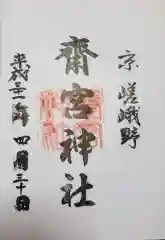 京 嵯峨野
齋宮神社
平成三十一年 四月三十日